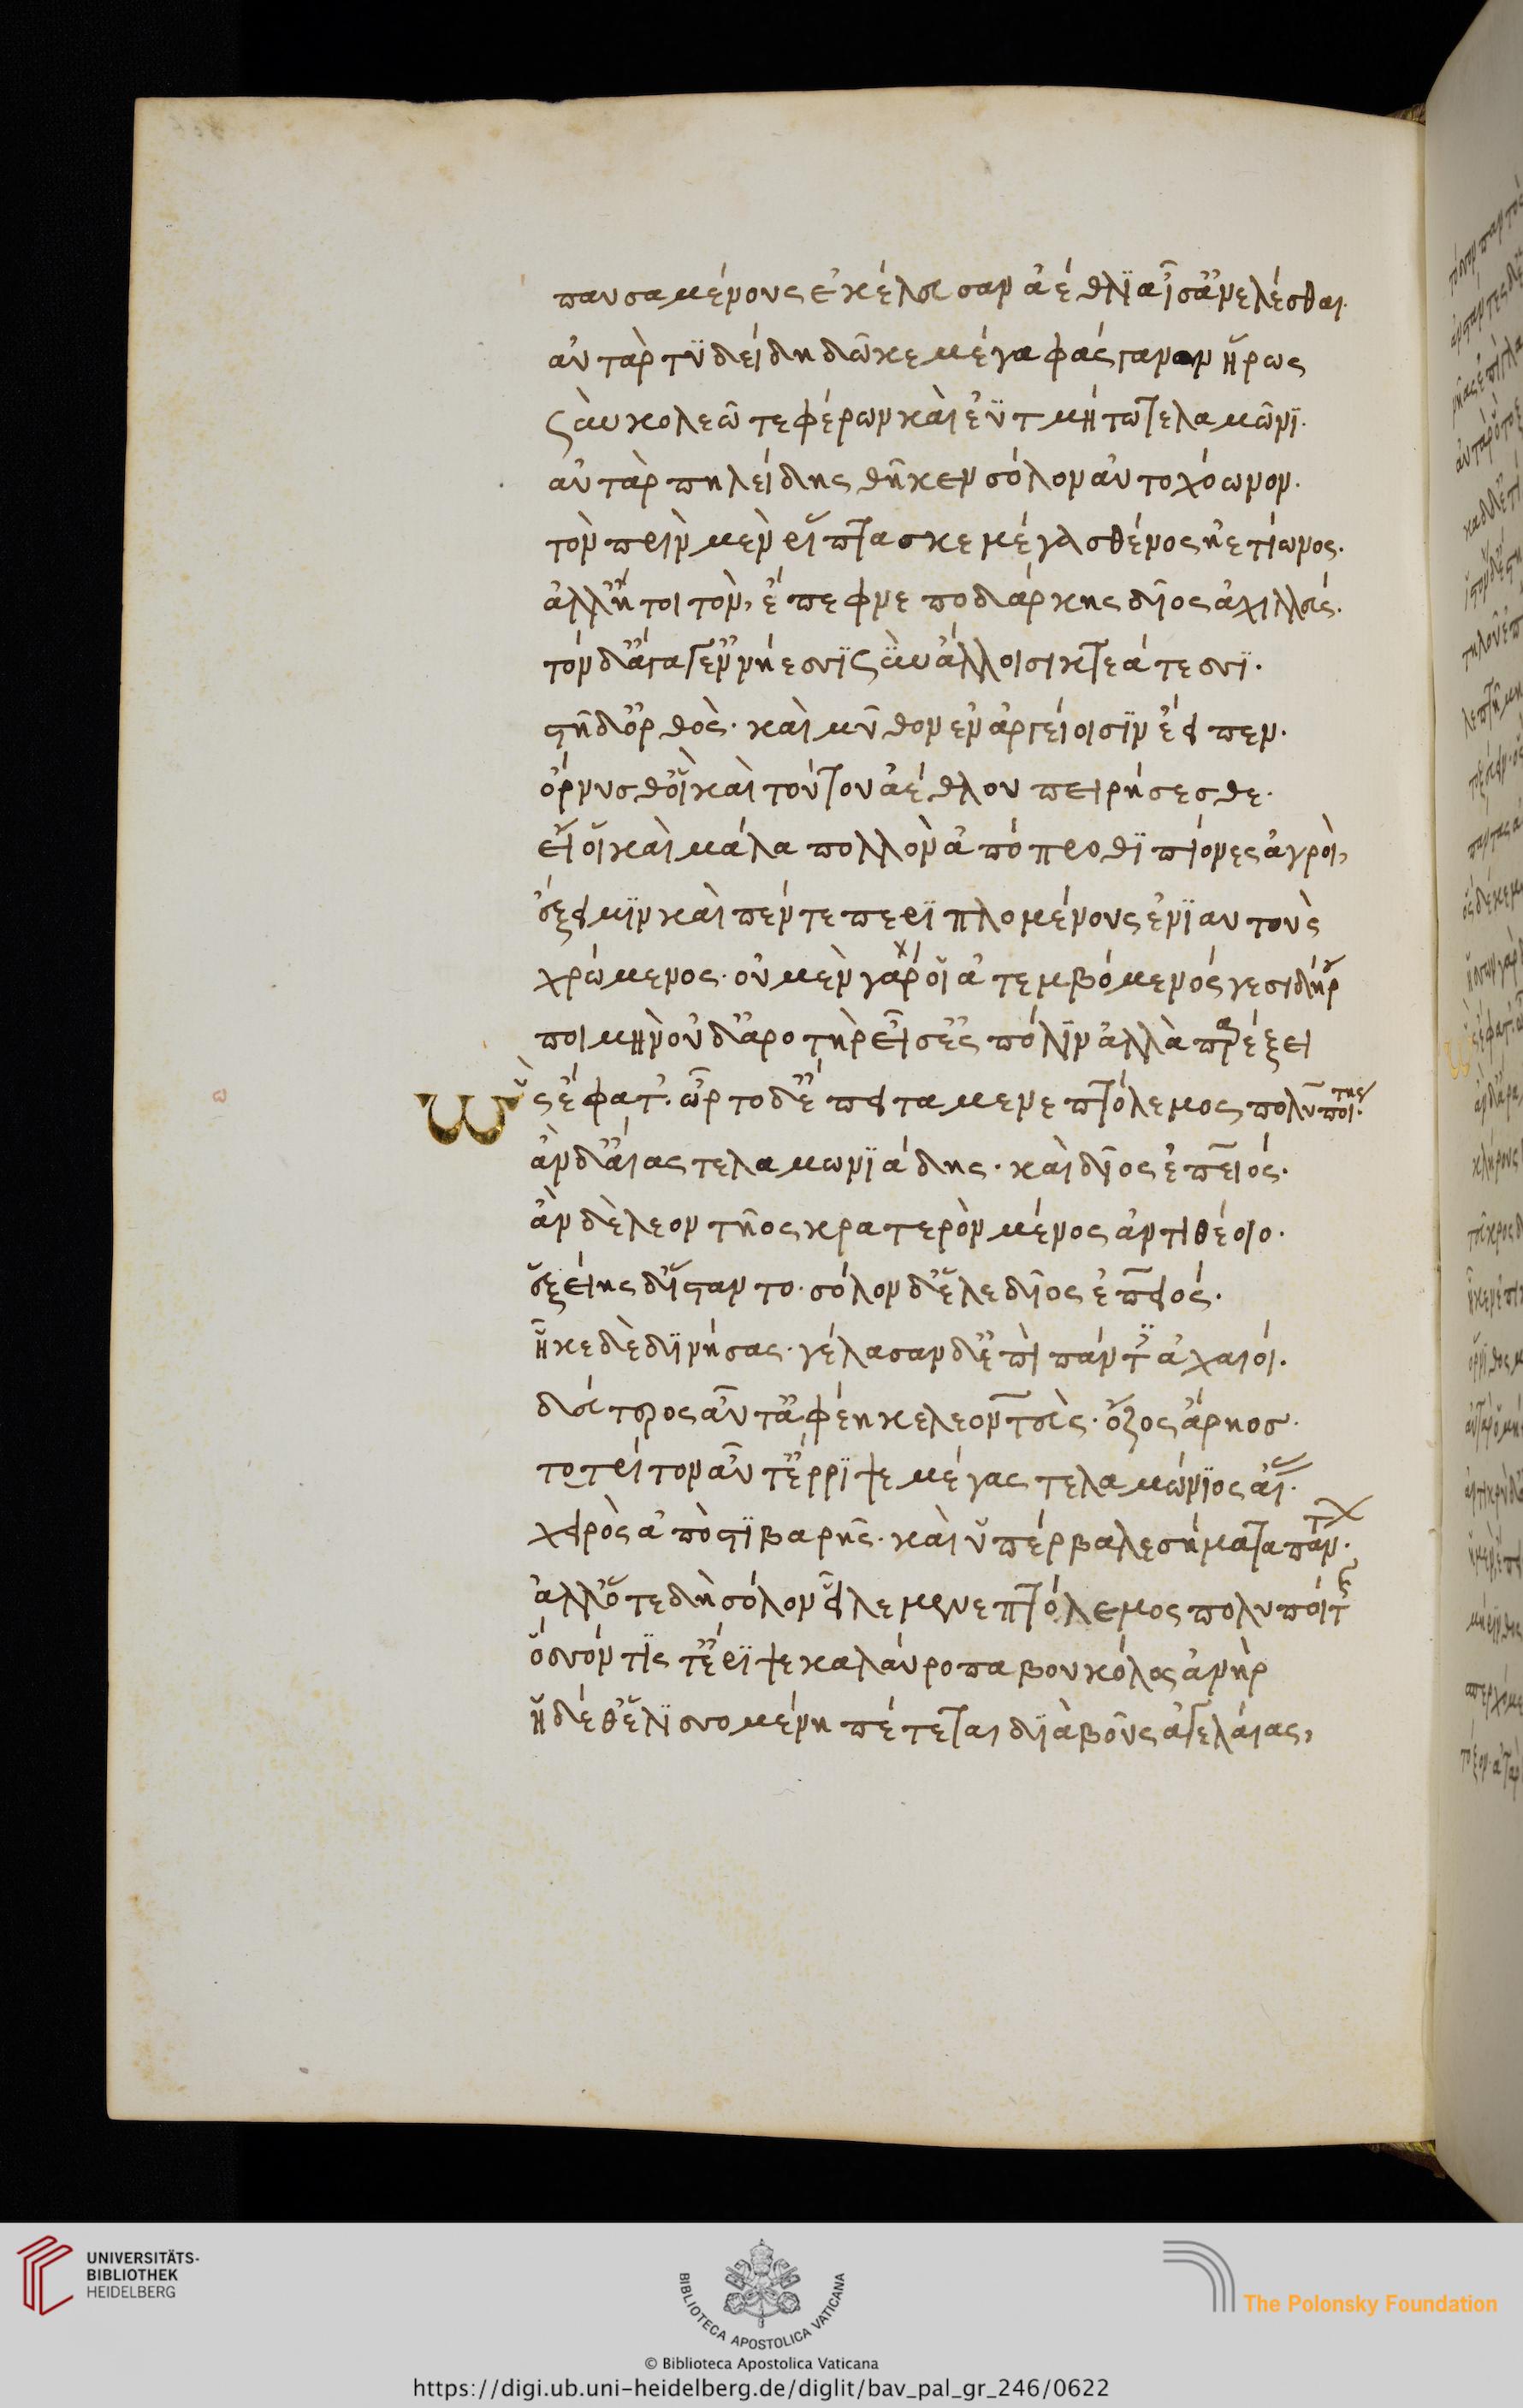 παυσαμένους ἐκέλευσαν ἀέθλϊα ἶσ' ἀνελέσθαι.
αὐτὰρ τϋδείδη δῶκε μέγα φάσγανον ἥρως
σὺν κολεῶ τε φέρων καὶ ἐϋτμήτω τελαμῶνϊ.
αὐτὰρ πηλείδης θῆκεν σόλον αὐτοχόωνον.
τὸν πρὶν μὲν ῥίπτασκε μέγα σθένος ἠετίωνος.
ἀλλ' ἤτοι τὸν, ἔπεφνε ποδάρκης δῖος ἀχιλλεύς.
τόνδ' ἄγατ' ἐν νήεσσϊ σὺν ἄλλοισι κτεάτεσσϊ.
στῆ δ' ὀρθὸς. καὶ μῦθον ἐν ἀργείοισϊν ἔειπεν.
ὄρνυσθ' οἳ καὶ τούτου ἀέθλου πειρήσεσθε.
εἴ οἱ καὶ μάλα πολλὸν ἀπόπροθϊ πίονες ἀγροὶ,
ἕξει μϊν καὶ πέντε περϊπλομένους ἐνϊαυτοὺς
χρώμενος. οὐ μὲν γάρ οἱ ἀτεμβόμενός γε σιδήρου
ποιμὴν οὐδ' ἀροτὴρ εἶσ' ἐς πόλϊν ἀλλὰ παρέξει
Ὣς ἔφατ'. ὦρτο δ' ἔπειτα μενεπτόλεμος πολυποίτης.
ἂν δ' αἴας τελαμωνϊάδης. καὶ δῖος ἐπειός.
ἂν δὲ λεοντῆος κρατερὸν μένος ἀντιθέοιο.
ἑξείης δ' ἵσταντο. σόλον δ' ἕλε δῖος ἐπειός.
ἧκε δὲ δϊνήσας. γέλασαν δ' ἐπὶ πάντες ἀχαιοί.
δεύτερος αὖτ' ἀφέηκε λεοντεὺς. ὄζος ἄρηοσ.
το τρίτον αὖτ' ἔρρϊψε μέγας τελαμώνϊος αἴας.
χειρὸς ἀπὸ στϊβαρῆς. καὶ ὑπέρβαλε σήματα πάντων.
ἀλλ' ὅτε δὴ σόλον εἷλε μενεπτόλεμος πολυποίτης
ὅσσόν τϊς τ' ἔρϊψε καλαύροπα βουκόλος ἀνὴρ
ἡ δέ θ' ἑλϊσσομένη πέτεται δϊὰ βοῦς ἀγελαίας,
ω
UNIVERSITÄTS-
BIBLIOTHEK
HEIDELBERG
BIBLIOTECA APOSTOLICA VATICANA
© Biblioteca Apostolica Vaticana
The Polonsky Foundation
https://digi.ub.uni-heidelberg.de/diglit/bav_pal_gr_246/0622